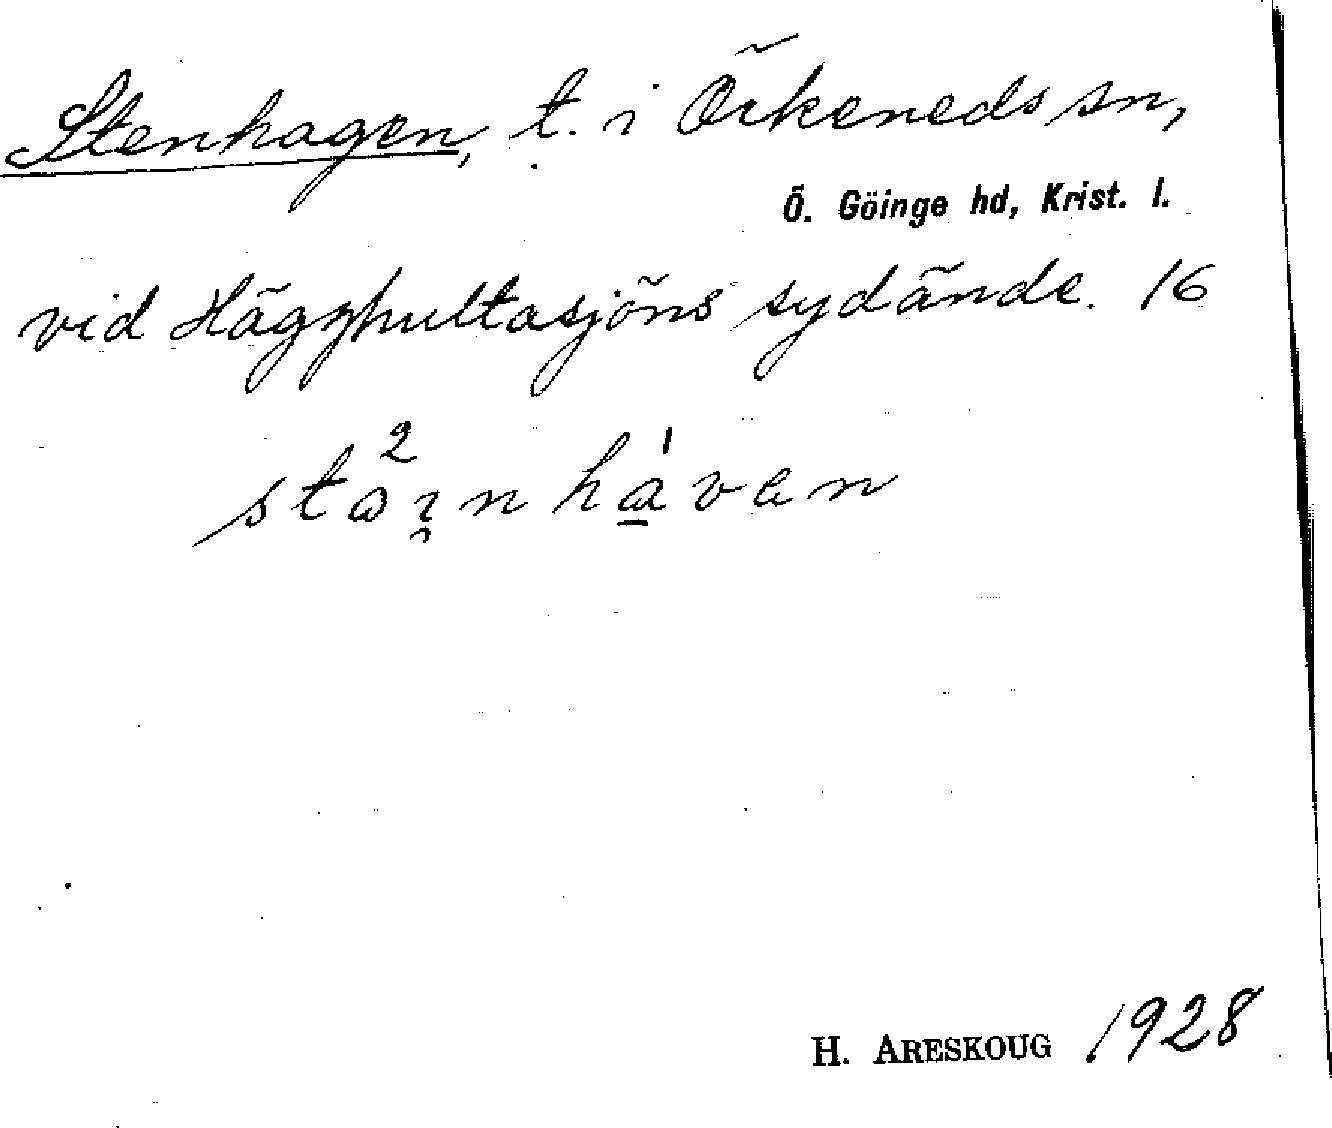 Stenhagen, t. i Örkeneds sn,
Ö. Göinge hd, Krist. l.
vid Hägghultasjöns sydände. 16
H. ARESKOUG 1928